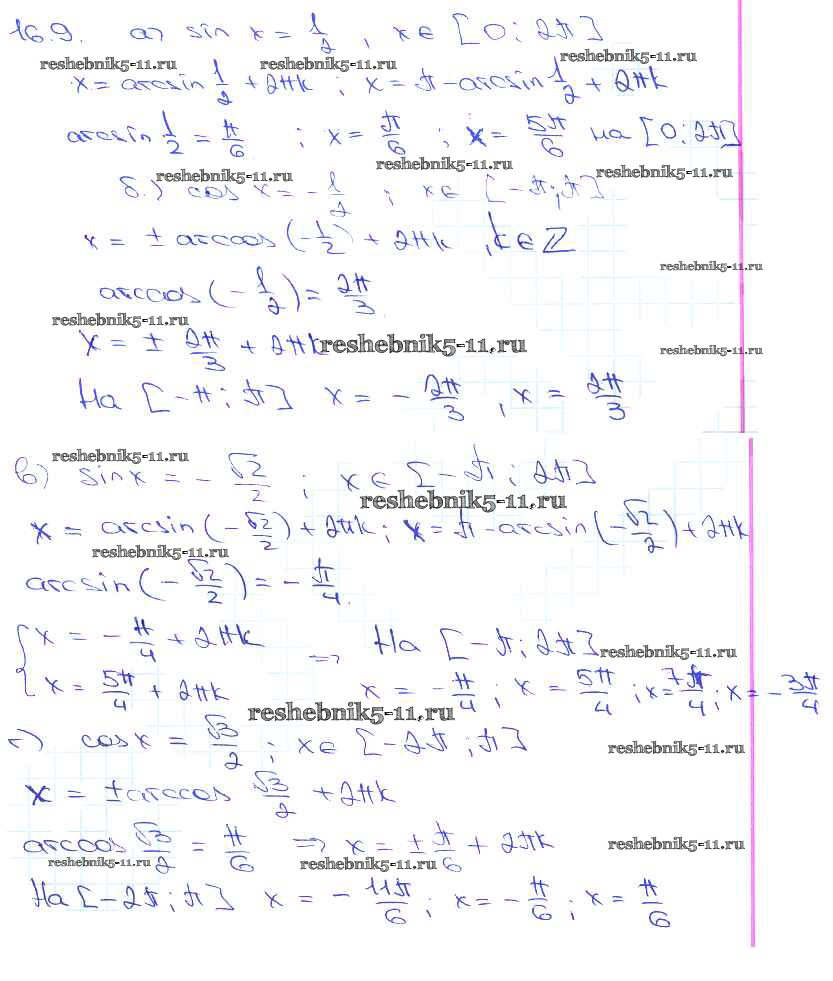 16.9. а) sin x = 1/2, x ∈ [0; 2π]
reshebnik5-11.ru reshebnik5-11.ru reshebnik5-11.ru
x = arcsin 1/2 + 2πk; x = π - arcsin 1/2 + 2πk
arcsin 1/2 = π/6; x = π/6; x = 5π/6 на [0; 2π]
reshebnik5-11.ru reshebnik5-11.ru reshebnik5-11.ru
б.) cos x = -1/2; x ∈ [-π; π]
x = ± arccos(-1/2) + 2πk, k ∈ Z
reshebnik5-11.ru
arccos(-1/2) = 2π/3
reshebnik5-11.ru
x = ± 2π/3 + 2πk
reshebnik5-11.ru reshebnik5-11.ru
На [-π; π] x = -2π/3, x = 2π/3
reshebnik5-11.ru
в) sin x = -√2/2; x ∈ [-π; 2π]
reshebnik5-11.ru
x = arcsin(-√2/2) + 2πk; x = π - arcsin(-√2/2) + 2πk
reshebnik5-11.ru
arcsin(-√2/2) = -π/4.
{ x = -π/4 + 2πk => На [-π; 2π]
reshebnik5-11.ru
x = 5π/4 + 2πk x = -π/4; x = 5π/4; x = 7π/4; x = -3π/4
reshebnik5-11.ru
г) cos x = √3/2; x ∈ [-2π; π]
reshebnik5-11.ru
x = ± arccos √3/2 + 2πk
arccos √3/2 = π/6 => x = ± π/6 + 2πk
reshebnik5-11.ru reshebnik5-11.ru reshebnik5-11.ru
На [-2π; π] x = -11π/6; x = -π/6; x = π/6